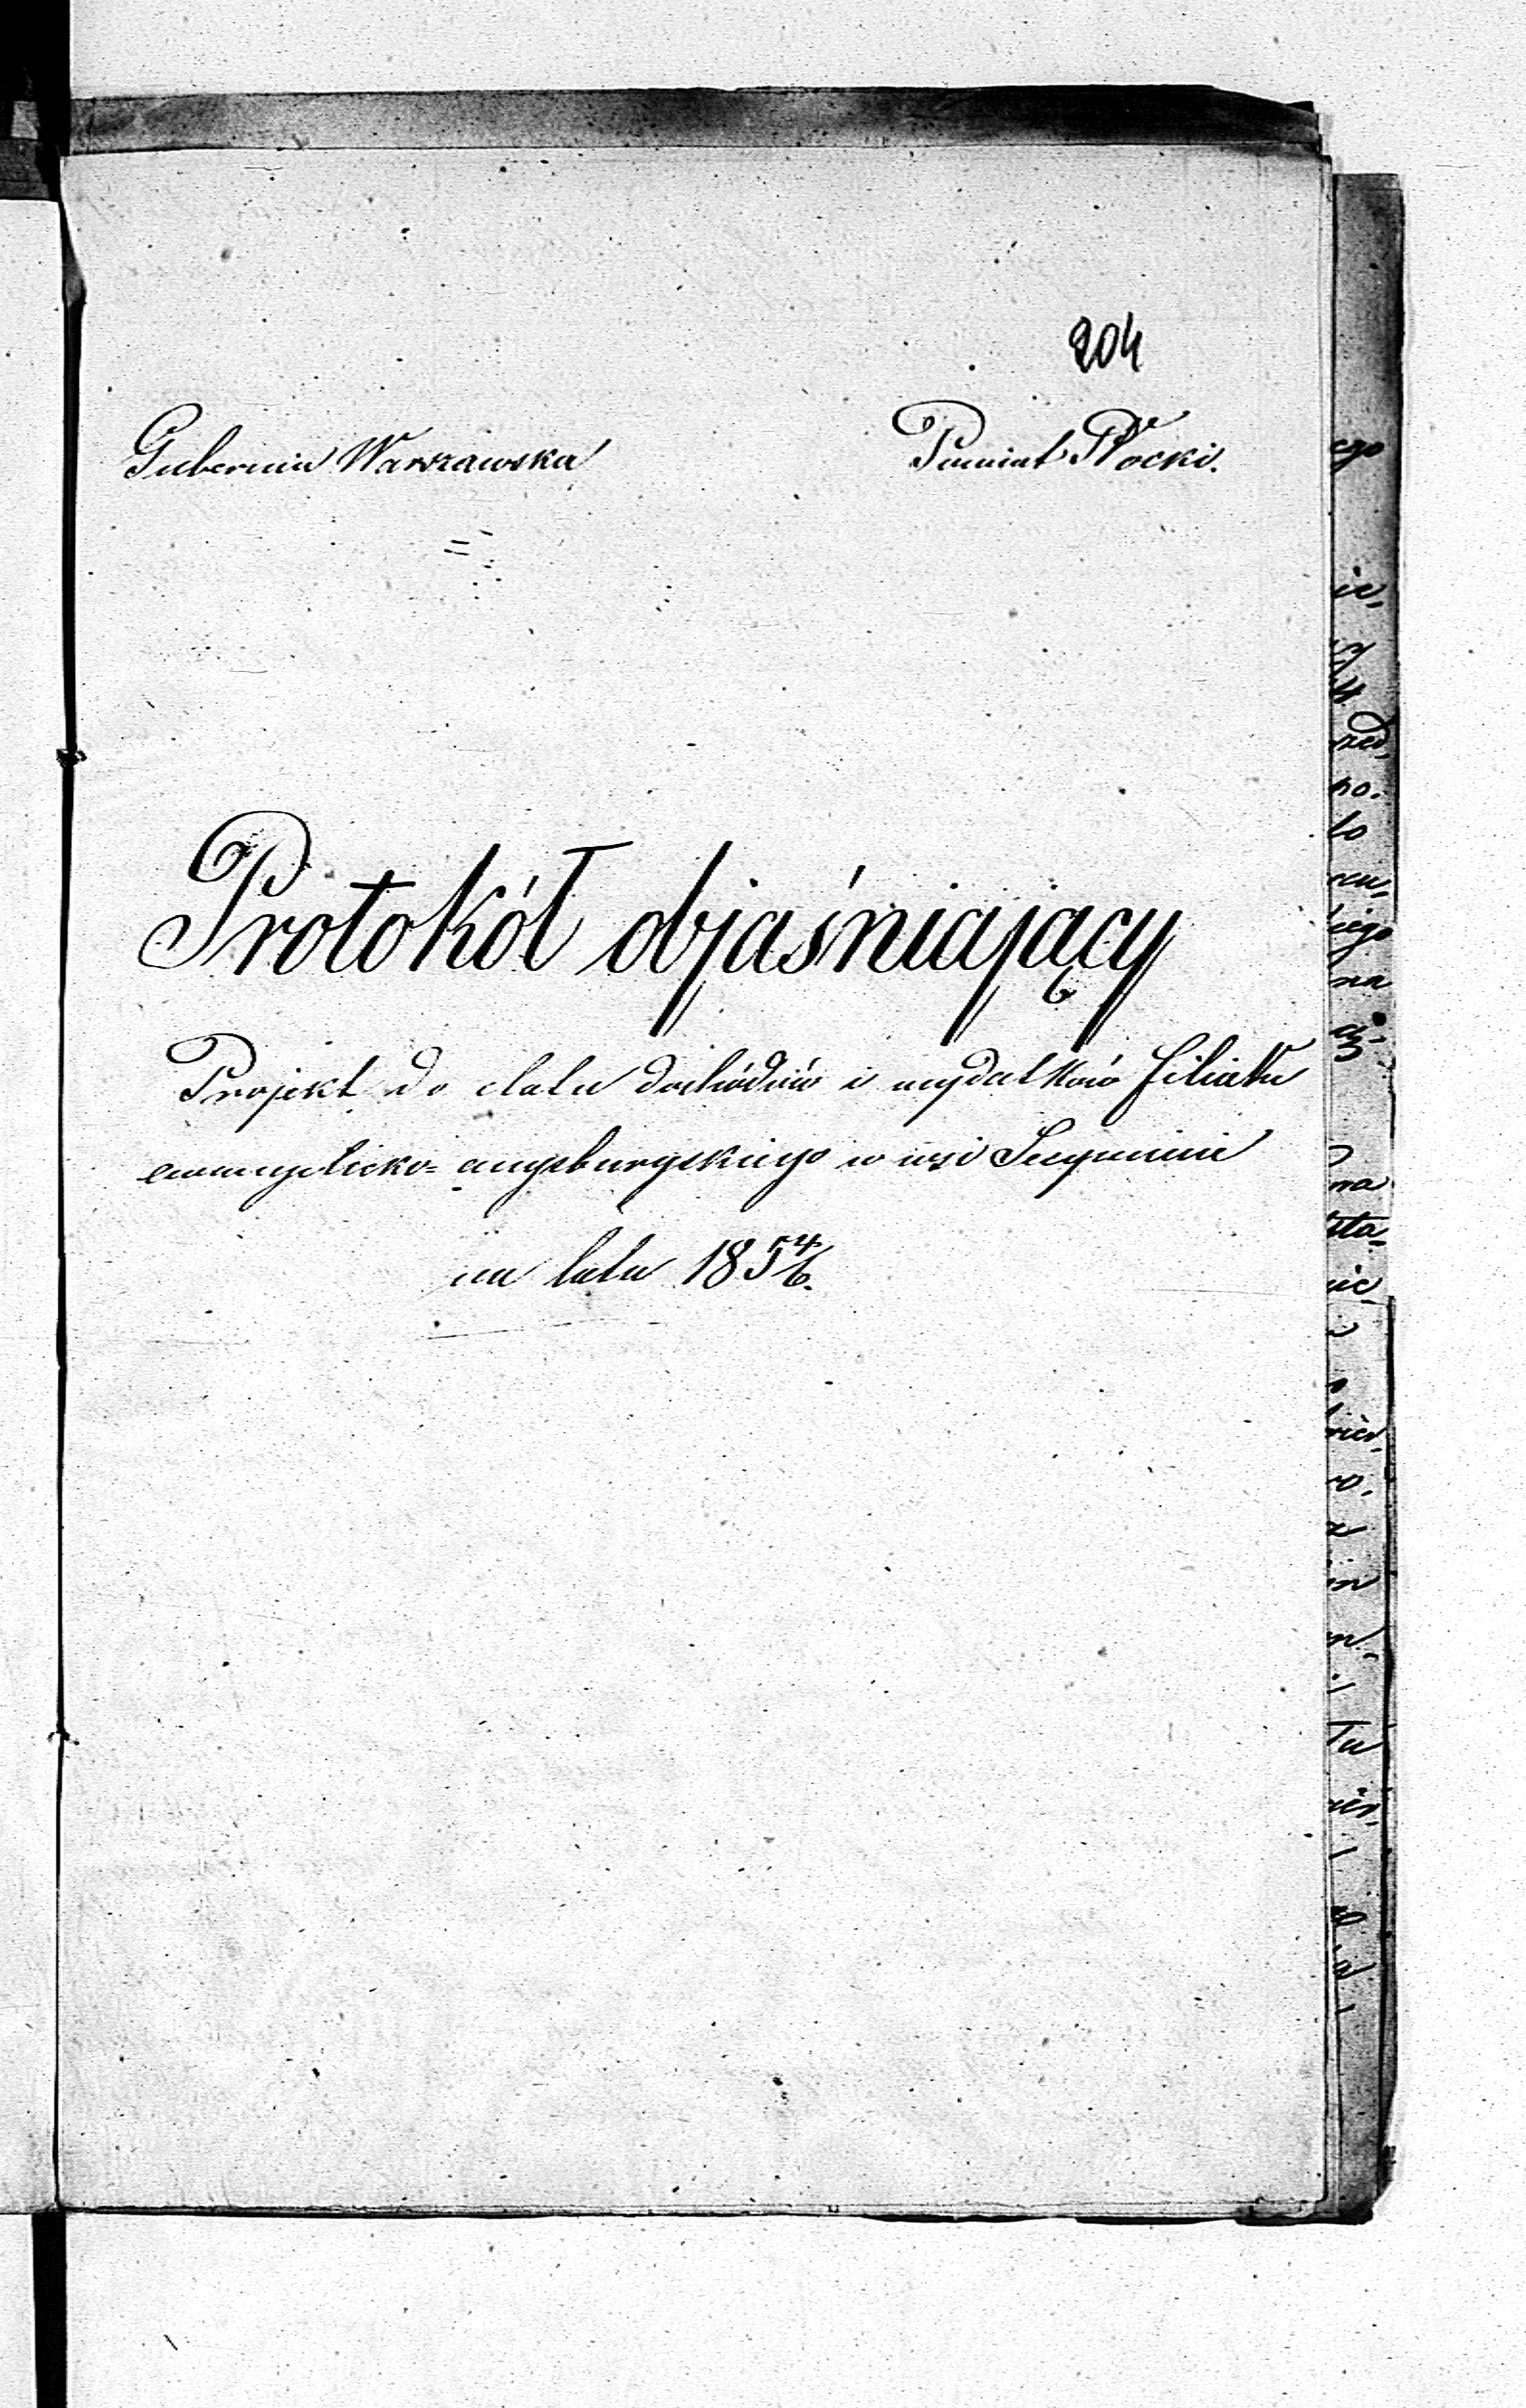 204
Gubernia Warszawska Powiat Płocki.
Protokół objaśniający
Projekt do etatu dochodów i wydatków filiału
ewangelicko= augsburgskiego w wsi Secyminie
na lata 1854/6.